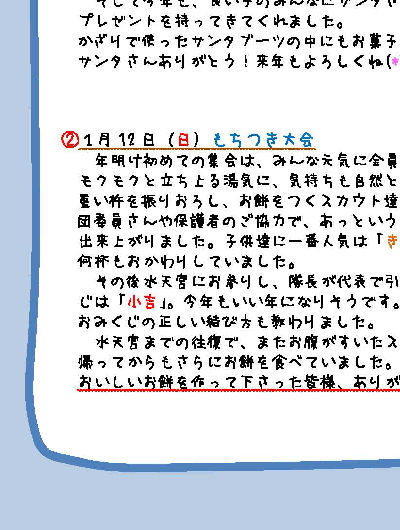 そして今年も、良い子のみんなにサンタさ
プレゼントを持ってきてくれました。
かざりで使ったサンタブーツの中にもお菓子
サンタさんありがとう！来年もよろしくね(*
②1月12日（日）もちつき大会
年明け初めての集会は、みんな元気に全員
モクモクと立ち上る湯気に、気持ちも自然と
重い杵を振りおろし、お餅をつくスカウト達
団委員さんや保護者のご協力で、あっという
出来上がりました。子供達に一番人気は「き
何杯もおかわりしていました。
その後水天宮にお参りし、隊長が代表で引
じは「小吉」。今年もいい年になりそうです。
おみくじの正しい結び方も教わりました。
水天宮までの往復で、またお腹がすいたス
帰ってからもさらにお餅を食べていました。
おいしいお餅を作って下さった皆様、ありが